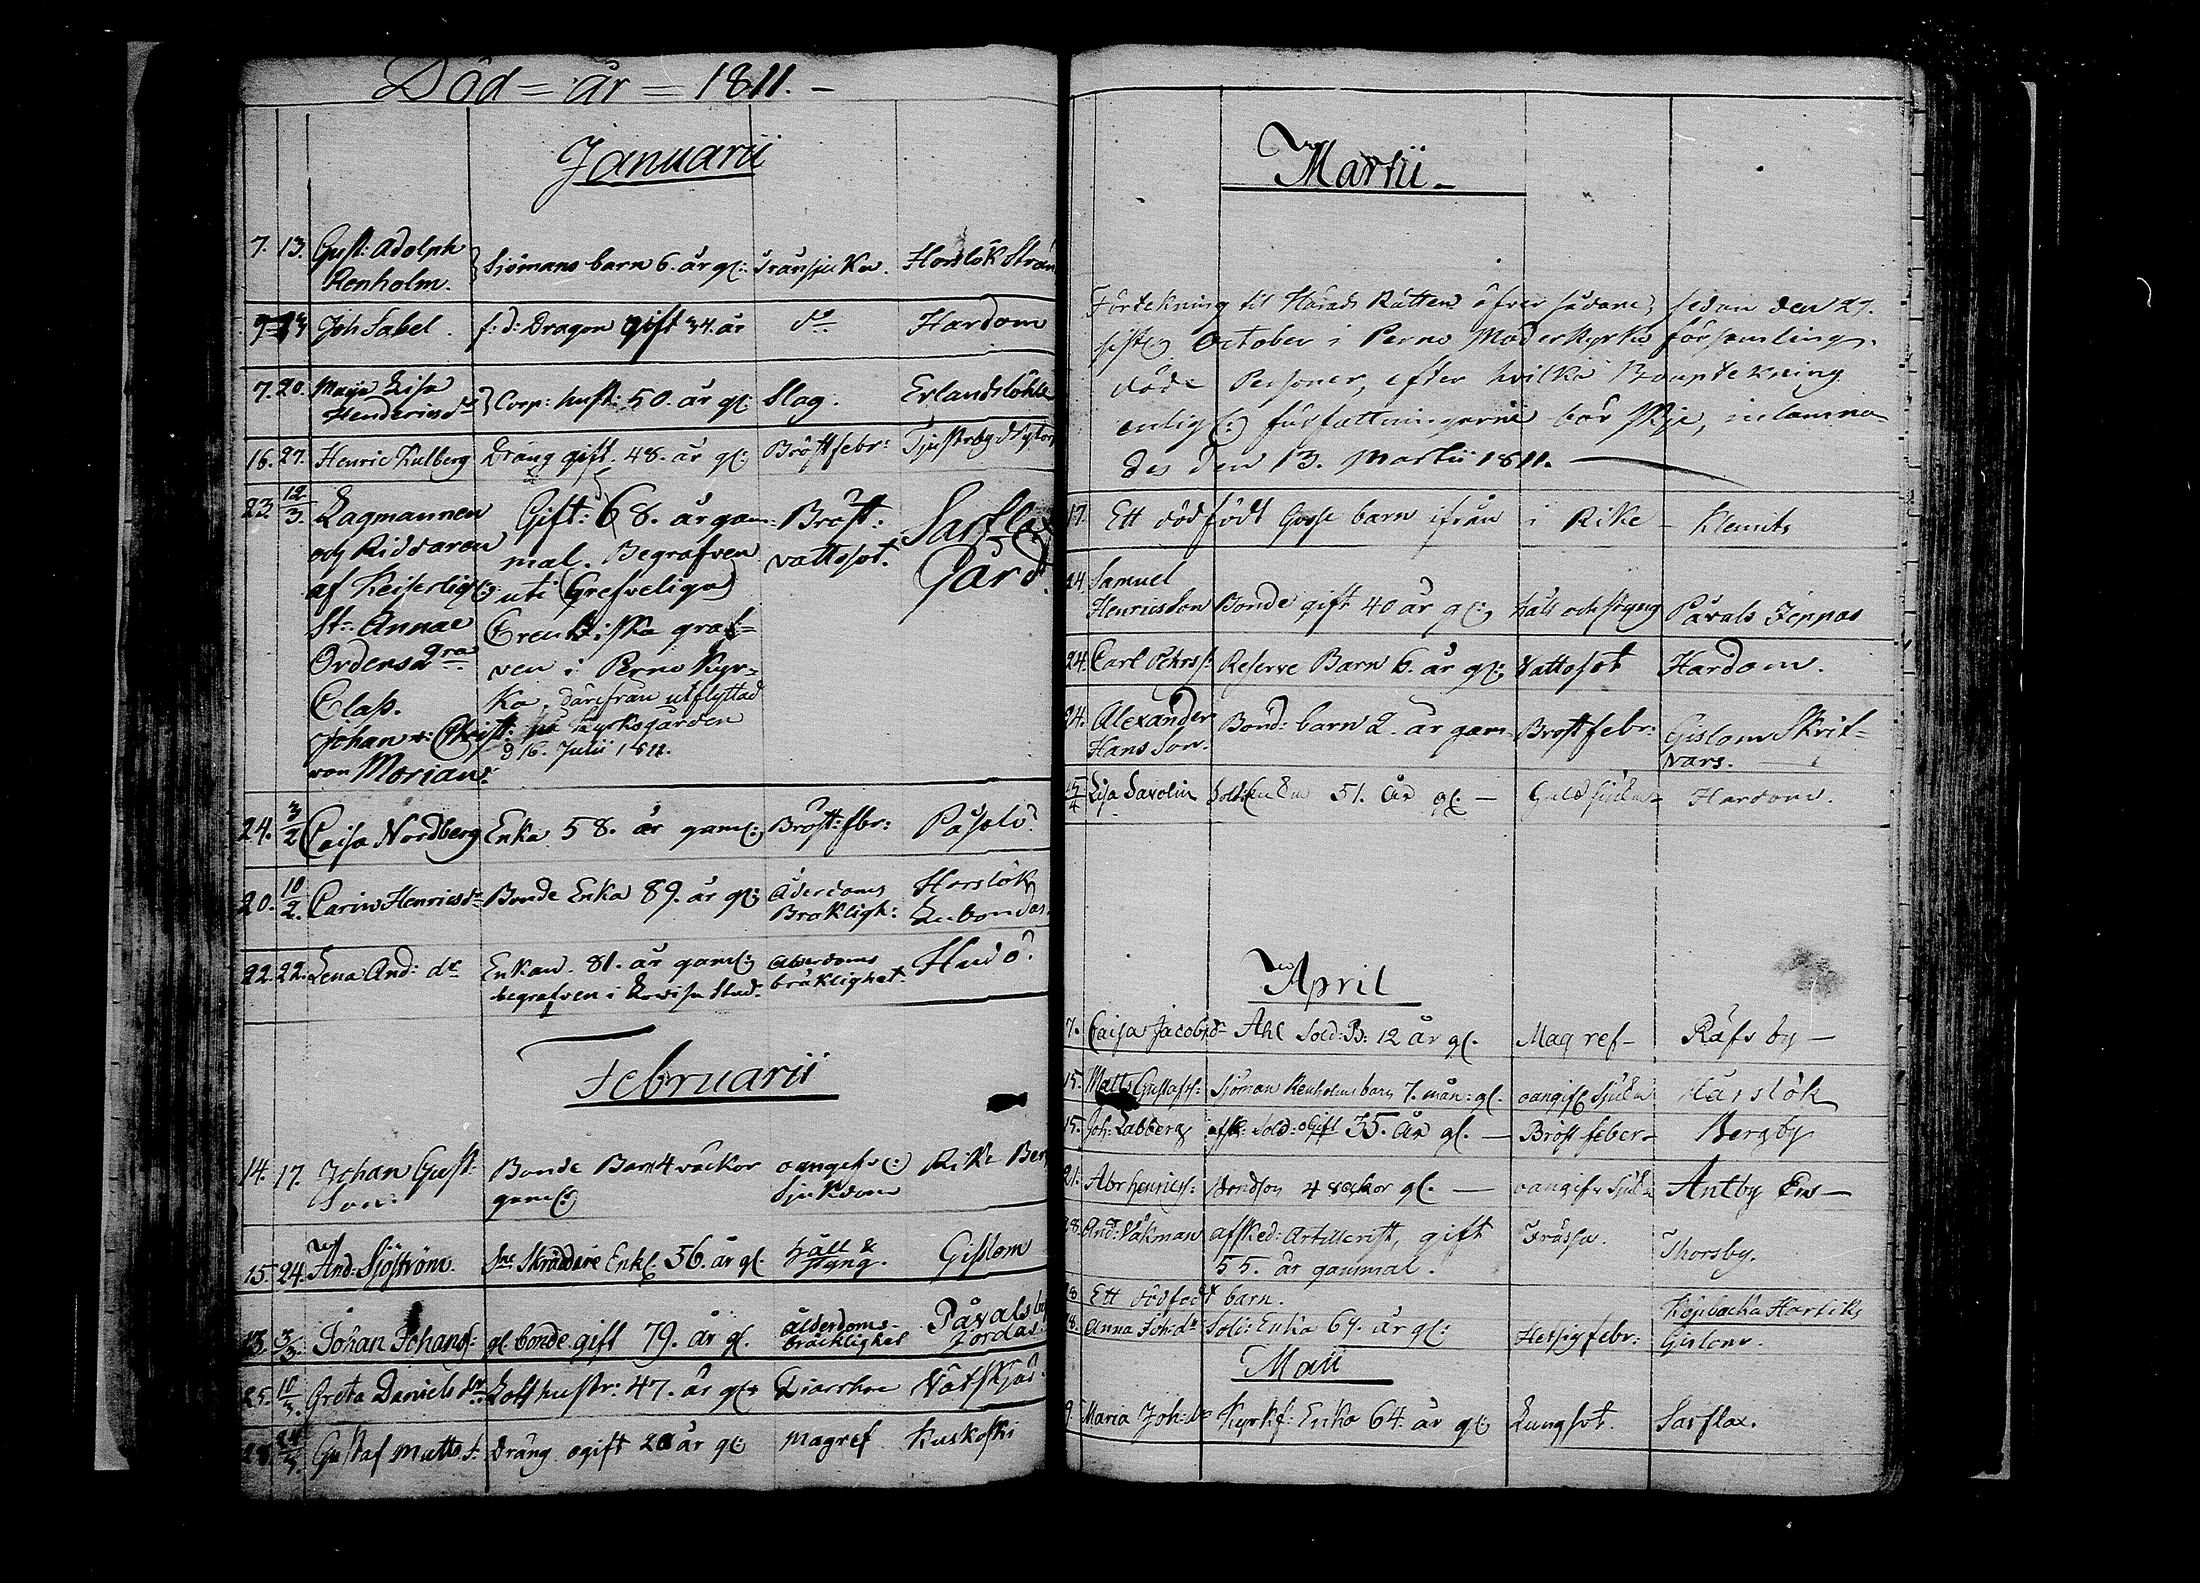 Död = år = 1811. –
Januarii
7. 13. Gust: Adolph Renholm. Sjömans barn 6. år gl: Transjuka. Horslök Strand
9. Joh Sabel. f: d: Dragon gift 34. år do Hardom
7. 20. Maija Lisa Henderiksdr Corp: hust: 50. år gl: Slag. Erlandsböhle
16. 27. Henric Kulberg Dräng gift. 48. år gl: Bröstfebr: Tjusterby
23. 12/3. Lagmannen Gift: 68. år gam- Bröst: Sarflax
och Riddaren mal. Begrafven vattosot. Gård.
af Keiserlige uti Grefveliga
St: Annae Creutziska graf=
Ordens 2dra ven i Perno Kyr=
Class. ka, därefrån utflyttad
Johan: Christ: på Kyrkogården
von Morian. d 16. Julii 1811.
24. 3/2 Caisa Nordberg Enka 58. år gaml: Bröst:fbr: Påsalö
20. 10/2. Carin Henricsdr Bonde Enka 89. år gl: Ålderdoms Bräkligh: Horslök Labondas.
22. 22. Lena And: dr Enkan. 81. år gaml: Ålderdoms Hudö.
begrafven i Lovisa Stad. bräklighet.
Februarii
14. 17. Johan Gust: Bonde Barn 4 veckor oangifv: Rike Ber
Son: gaml: Sjukdom
15. 24. And: Sjöström. Skräddare Enkl: 56. år gl. håll & styng. Gislom
13. 3/3. Johan Johans: gl. bonde gift 79. år gl. ålderdoms- bräcklighet Påvalsby Jordas:
25. 10/3. Greta Daniels dr hustr: 47. år gl: Diarrhoe Våtskjär
28. 24/3. Gustaf Matts s: Dräng ogift 20 år gl: magref Kuskoski
Martii –
Förtekning til Härads Rätten öfver sådane, sedan den 27.
sistl: October i Perno Moderkyrko församling
döde Personer, efter hvilka Boupteckning
enligt författningarne bör skje, inlämna-
des den 13. Martii 1811.
17. Ett dödfödt Gosse barn ifrån i Rike – Klemits
24. Samuel
Henricsson Bonde gift 40 år gl: håll och styng Påvals Jeppas
24. Carl Pehrs s: Reserve Barn 6. år gl: Vattosot Hardom.
24. Alexander Bond: barn 2. år gam- Bröstfebr: Gislom Skrif=
Hans Son. vars.
15/4 Lisa Savolin 51. år gl. – Hardom.
April
7. Caisa Jacobsdr Ahl Sold: B: 12 år gl. Magref – Räfsby –
15. Matts Gustafss: Sjöman Renholms barn 7. mån: gl. oangifl: Sjukd Härslök
15. Joh: Labberg afsk: Sold: ogift 35. år gl. – Bröst feber – Bergby
21. Abr Henricss: Bondson 4 veckor gl. – oangifv: Sjukd Antby Ers –
28. And: Våkman afsked: Artillerist, gift Frossa. Thorsby.
55. år gammal.
28 Ett dödfödt barn. Kopbacka Hartiks
28. Anna Joh: dr Sold: Enka 69. år gl: Hetsigfebr: Gislom.
Maii
9. Maria Joh: dr Kyrkf: Enka 64. år gl: Lungsot. Sarflax.